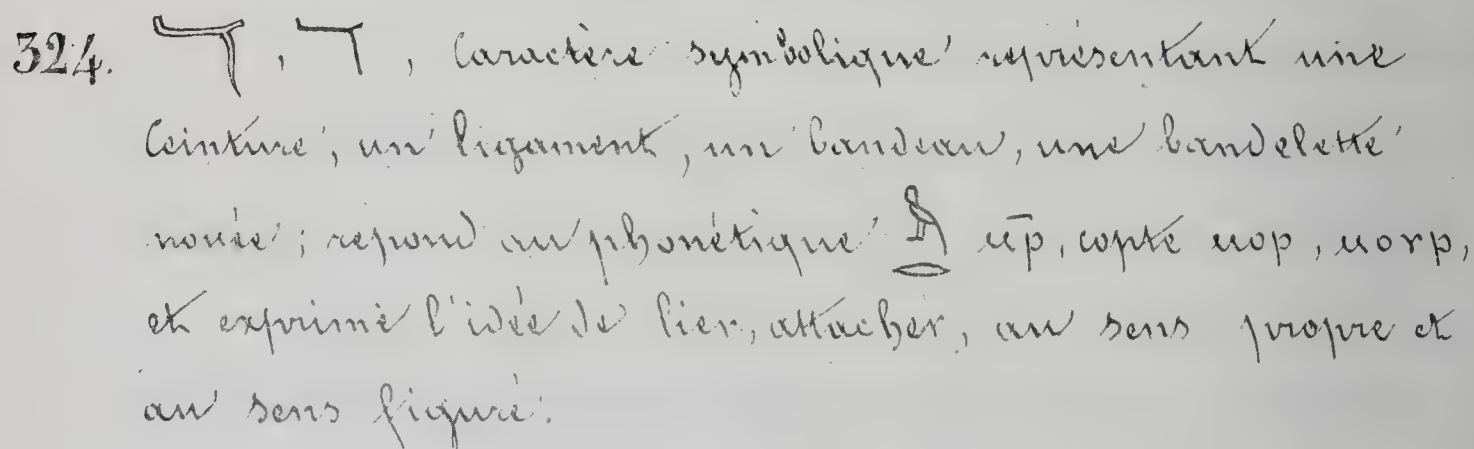 324. , , Caractère symbolique représentant une
Ceinture, un ligament, un bandeau, une bandelette
nouée ; repond au phonétique 𓅓𓂋 ⲙⲣ̄, copte ⲙⲟⲣ, ⲙⲟⲩⲣ,
et exprime l'idée de lier, attacher, au sens propre et
au sens figuré.